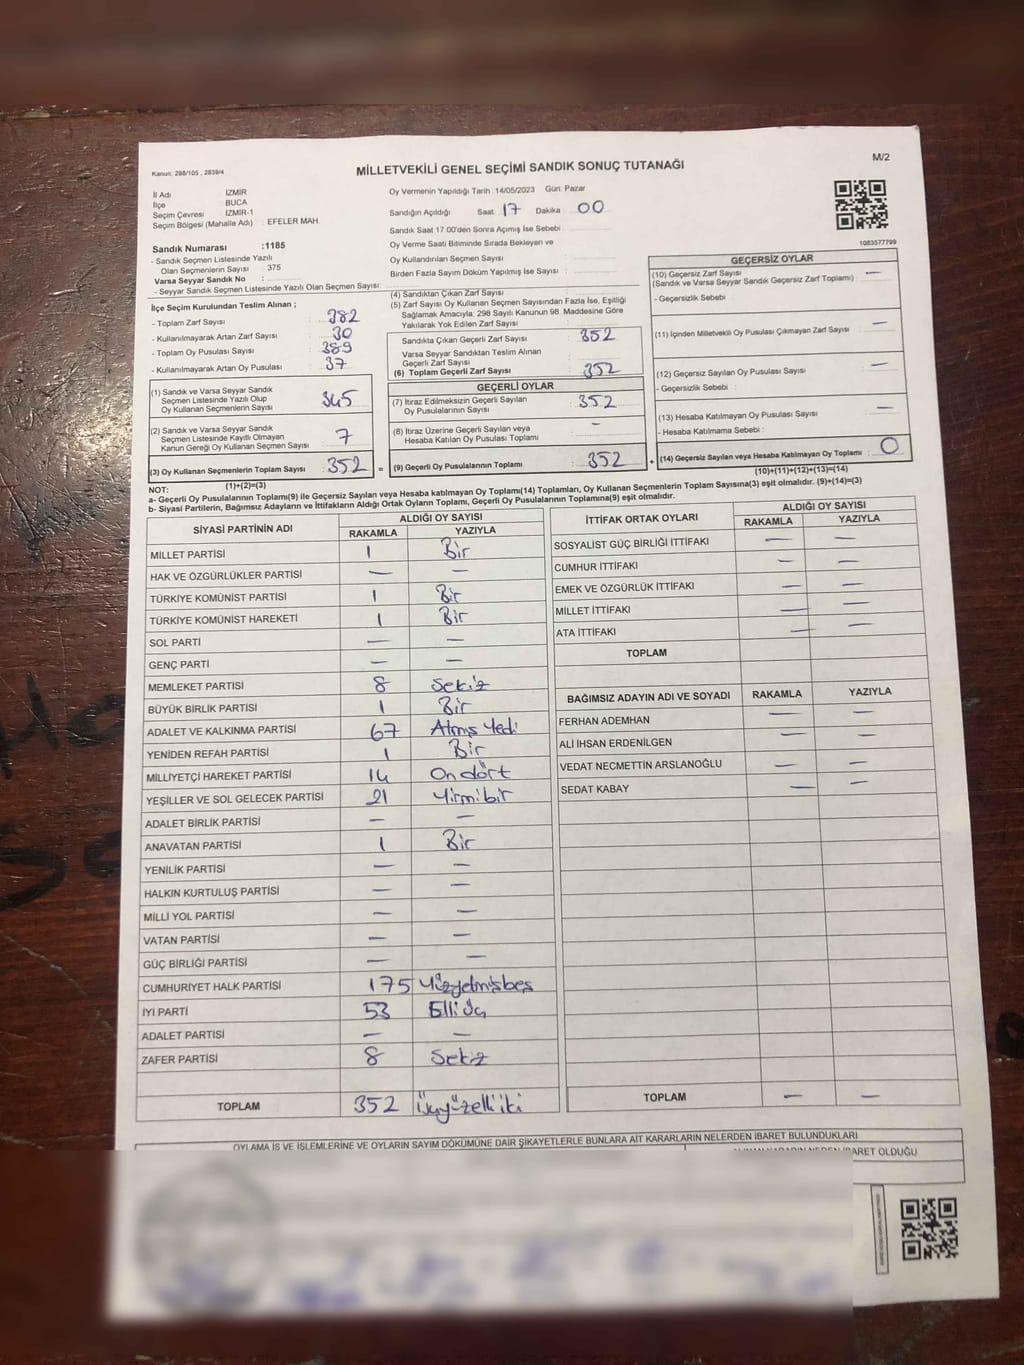 Kanun: 298/105 , 2839/4
MİLLETVEKİLİ GENEL SEÇİMİ SANDIK SONUÇ TUTANAĞI
M/2
İl Adı İZMİR
İlçe BUCA
Seçim Çevresi İZMİR-1
Seçim Bölgesi (Mahalle Adı) : EFELER MAH.
Sandık Numarası :1185
- Sandık Seçmen Listesinde Yazılı
Olan Seçmenlerin Sayısı 375
Varsa Seyyar Sandık No :
- Seyyar Sandık Seçmen Listesinde Yazılı Olan Seçmen Sayısı:
Oy Vermenin Yapıldığı Tarih :14/05/2023 Gün: Pazar
Sandığın Açıldığı Saat : 17 Dakika : 00
Sandık Saat 17.00'den Sonra Açılmış İse Sebebi :
Oy Verme Saati Bitiminde Sırada Bekleyen ve
Oy Kullandırılan Seçmen Sayısı :
Birden Fazla Sayım Döküm Yapılmış İse Sayısı :
1083577799
İlçe Seçim Kurulundan Teslim Alınan ;
- Toplam Zarf Sayısı : 382
- Kullanılmayarak Artan Zarf Sayısı : 30
- Toplam Oy Pusulası Sayısı : 389
- Kullanılmayarak Artan Oy Pusulası : 37
(1) Sandık ve Varsa Seyyar Sandık
Seçmen Listesinde Yazılı Olup
Oy Kullanan Seçmenlerin Sayısı : 345
(2) Sandık ve Varsa Seyyar Sandık
Seçmen Listesinde Kayıtlı Olmayan
Kanun Gereği Oy Kullanan Seçmen Sayısı : 7
(3) Oy Kullanan Seçmenlerin Toplam Sayısı : 352 =
(1)+(2)=(3)
(4) Sandıktan Çıkan Zarf Sayısı :
(5) Zarf Sayısı Oy Kullanan Seçmen Sayısından Fazla İse, Eşitliği
Sağlamak Amacıyla, 298 Sayılı Kanunun 98. Maddesine Göre
Yakılarak Yok Edilen Zarf Sayısı :
Sandıkta Çıkan Geçerli Zarf Sayısı : 352
Varsa Seyyar Sandıktan Teslim Alınan
Geçerli Zarf Sayısı :
(6) Toplam Geçerli Zarf Sayısı : 352
GEÇERLİ OYLAR
(7) İtiraz Edilmeksizin Geçerli Sayılan
Oy Pusulalarının Sayısı : 352
(8) İtiraz Üzerine Geçerli Sayılan veya
Hesaba Katılan Oy Pusulası Toplamı : –
(9) Geçerli Oy Pusulalarının Toplamı : 352 +
GEÇERSİZ OYLAR
(10) Geçersiz Zarf Sayısı : —
(Sandık ve Varsa Seyyar Sandık Geçersiz Zarf Toplamı)
- Geçersizlik Sebebi :
(11) İçinden Milletvekili Oy Pusulası Çıkmayan Zarf Sayısı : —
(12) Geçersiz Sayılan Oy Pusulası Sayısı : —
- Geçersizlik Sebebi :
(13) Hesaba Katılmayan Oy Pusulası Sayısı : —
- Hesaba Katılmama Sebebi :
(14) Geçersiz Sayılan veya Hesaba Katılmayan Oy Toplamı : 0
(10)+(11)+(12)+(13)=(14)
NOT:
a- Geçerli Oy Pusulalarının Toplamı(9) ile Geçersiz Sayılan veya Hesaba katılmayan Oy Toplamı(14) Toplamları, Oy Kullanan Seçmenlerin Toplam Sayısına(3) eşit olmalıdır. (9)+(14)=(3)
b- Siyasi Partilerin, Bağımsız Adayların ve İttifakların Aldığı Ortak Oyların Toplamı, Geçerli Oy Pusulalarının Toplamına(9) eşit olmalıdır.
SİYASİ PARTİNİN ADI ALDIĞI OY SAYISI
RAKAMLA YAZIYLA
MİLLET PARTİSİ 1 Bir
HAK VE ÖZGÜRLÜKLER PARTİSİ — —
TÜRKİYE KOMÜNİST PARTİSİ 1 Bir
TÜRKİYE KOMÜNİST HAREKETİ 1 Bir
SOL PARTİ — —
GENÇ PARTİ — —
MEMLEKET PARTİSİ 8 Sekiz
BÜYÜK BİRLİK PARTİSİ 1 Bir
ADALET VE KALKINMA PARTİSİ 67 Atmış Yedi
YENİDEN REFAH PARTİSİ 1 Bir
MİLLİYETÇİ HAREKET PARTİSİ 14 On dört
YEŞİLLER VE SOL GELECEK PARTİSİ 21 Yirmibir
ADALET BİRLİK PARTİSİ — —
ANAVATAN PARTİSİ 1 Bir
YENİLİK PARTİSİ — —
HALKIN KURTULUŞ PARTİSİ — —
MİLLİ YOL PARTİSİ — —
VATAN PARTİSİ — —
GÜÇ BİRLİĞİ PARTİSİ — —
CUMHURİYET HALK PARTİSİ 175 Yüzyetmişbeş
İYİ PARTİ 53 Elli üç
ADALET PARTİSİ — —
ZAFER PARTİSİ 8 Sekiz
TOPLAM 352 Üçyüzelli iki
İTTİFAK ORTAK OYLARI ALDIĞI OY SAYISI
RAKAMLA YAZIYLA
SOSYALİST GÜÇ BİRLİĞİ İTTİFAKI — —
CUMHUR İTTİFAKI — —
EMEK VE ÖZGÜRLÜK İTTİFAKI — —
MİLLET İTTİFAKI — —
ATA İTTİFAKI — —
TOPLAM
BAĞIMSIZ ADAYIN ADI VE SOYADI RAKAMLA YAZIYLA
FERHAN ADEMHAN — —
ALİ İHSAN ERDENİLGEN — —
VEDAT NECMETTİN ARSLANOĞLU — —
SEDAT KABAY — —
TOPLAM — —
OYLAMA İŞ VE İŞLEMLERİNE VE OYLARIN SAYIM DÖKÜMÜNE DAİR ŞİKAYETLERLE BUNLARA AİT KARARLARIN NELERDEN İBARET BULUNDUKLARI
İBARET OLDUĞU